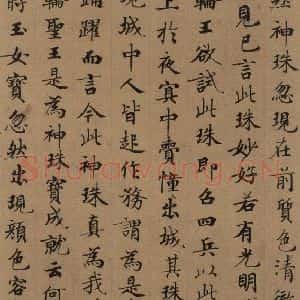 然神珠忽現在前質色清徹
見已言此珠妙好若有光明
輪王欲試此珠即召四兵以此
上於夜冥中賷幢出城其珠
現城中人皆起作務謂為是
踊躍而言今此神珠真為我
輪聖王是為神珠寶成就云何
時玉女寶忽然出現顏色容
Shufawang.CN